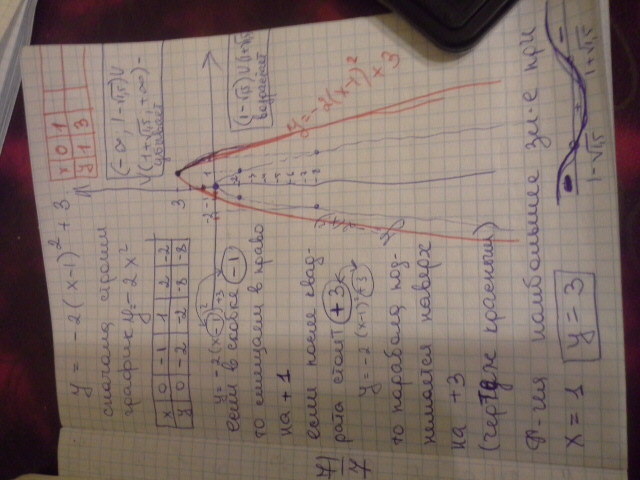 y = -2(x-1)² + 3
сначала строим
график y=-2x²
x | 0 | -1 | 1 | 2 | -2
y | 0 | -2 | -2 | -8 | -8
y=-2(x-1)²+3
если в скобке -1
то смещаем в право
на +1
если после квад-
рата стоит +3
y=-2(x-1)²+3
то парабола под-
нимается наверх
на +3
(чертеж красным)
Ф-ция наибольшее зн-е при
x = 1 y = 3
x | 0 | 1
y | 1 | 3
(-∞; 1-√1,5)∪
∪(1+√1,5; +∞)-
убывает
возрастает
y=-2(x-1)²+3
3
1-√1,5
1+√1,5
7)
7